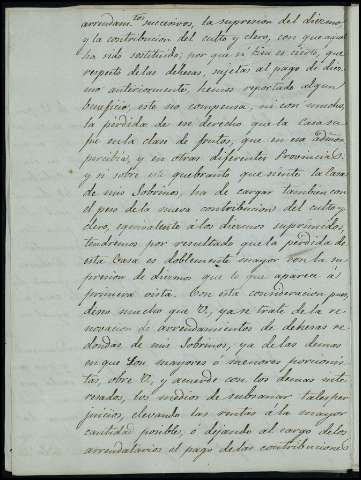 arrendam.tos succesivos, la supresion del diezmo,
y la contribucion del culto y clero, con que aquel
ha sido sostituido; por que si bien es cierto, que
respecto de las dehesas, sujetas al pago de diez-
mo anteriormente, hemos reportado algun
beneficio, este no compensa, ni con mucho,
la pérdida de ese derecho que la Casa su-
fre en la clase de frutos, que en esa admon
percibia, y en otras diferentes Provincias.
Y si sobre este quebranto que siente la Casa
de mis Sobrinos, ha de cargar tambien con
el peso de la nueva contribucion del culto y
clero, equivalente á los diezmos suprimidos,
tendremos por resultado que la pérdida de
esta Casa es doblemente mayor con la su-
presion de diezmos que lo que aparece á
primera vista. Con esta consideracion pues,
deseo mucho que V., ya se trate de la re-
novacion de arrendamientos de dehesas re-
dondas de mis Sobrinos, ya de las demas
en que son mayores ó menores porcionis-
tas, obre V., y acuerde con los demas inte-
resados, los medios de subsanar tales per-
juicios, elevando las rentas á la mayor
cantidad posible, ó dejando al cargo de los
arrendatarios el pago de las contribuciones